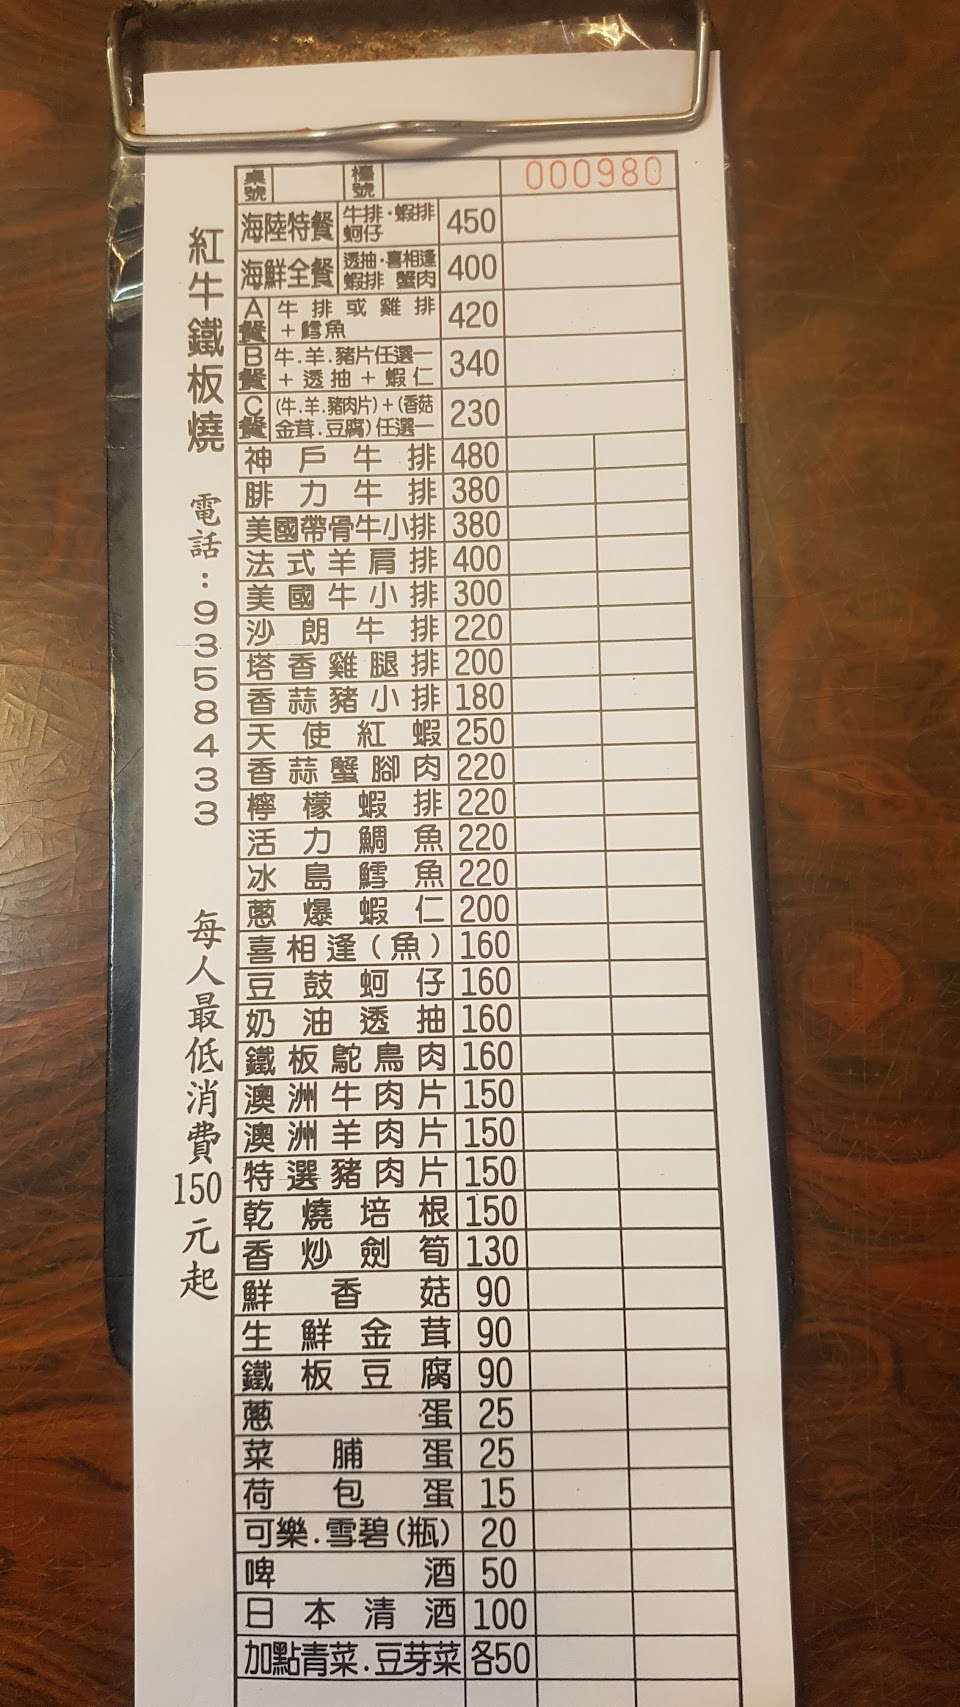 紅牛鐵板燒 電話:9358433 每人最低消費150元起
桌號 檯號 000980
海陸特餐 牛排.蝦排 蚵仔 450
海鮮全餐 透抽.喜相逢 蝦排 蟹肉 400
A餐 牛排或雞排+鱈魚 420
B餐 牛.羊.豬片任選一+透抽+蝦仁 340
C餐 (牛.羊.豬肉片)+(香菇 金茸.豆腐)任選一 230
神戶牛排 480
腓力牛排 380
美國帶骨牛小排 380
法式羊肩排 400
美國牛小排 300
沙朗牛排 220
塔香雞腿排 200
香蒜豬小排 180
天使紅蝦 250
香蒜蟹腳肉 220
檸檬蝦排 220
活力鯛魚 220
冰島鱈魚 220
蔥爆蝦仁 200
喜相逢(魚) 160
豆鼓蚵仔 160
奶油透抽 160
鐵板鴕鳥肉 160
澳洲牛肉片 150
澳洲羊肉片 150
特選豬肉片 150
乾燒培根 150
香炒劍筍 130
鮮香菇 90
生鮮金茸 90
鐵板豆腐 90
蔥蛋 25
菜脯蛋 25
荷包蛋 15
可樂.雪碧(瓶) 20
啤酒 50
日本清酒 100
加點青菜.豆芽菜 各50